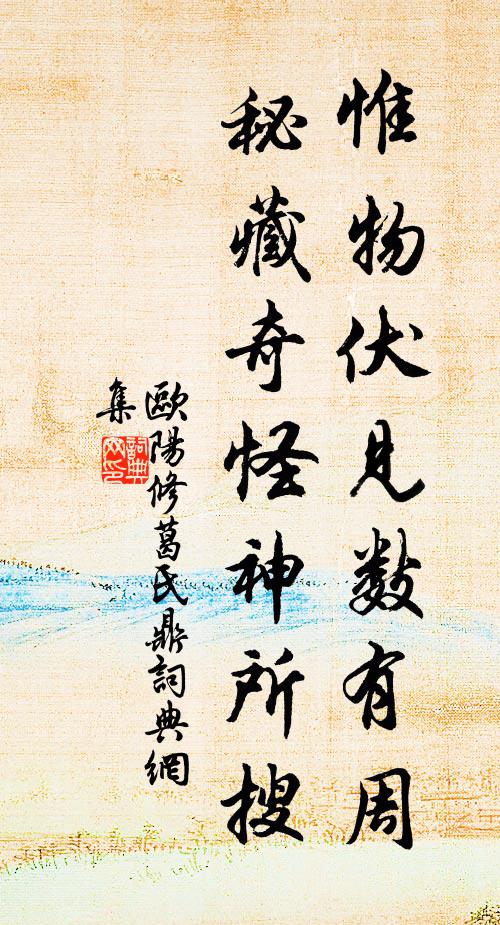 惟物伏見數有周
秘藏奇怪神所搜
歐陽修葛氏鼎詞典網
集
詞典
网印